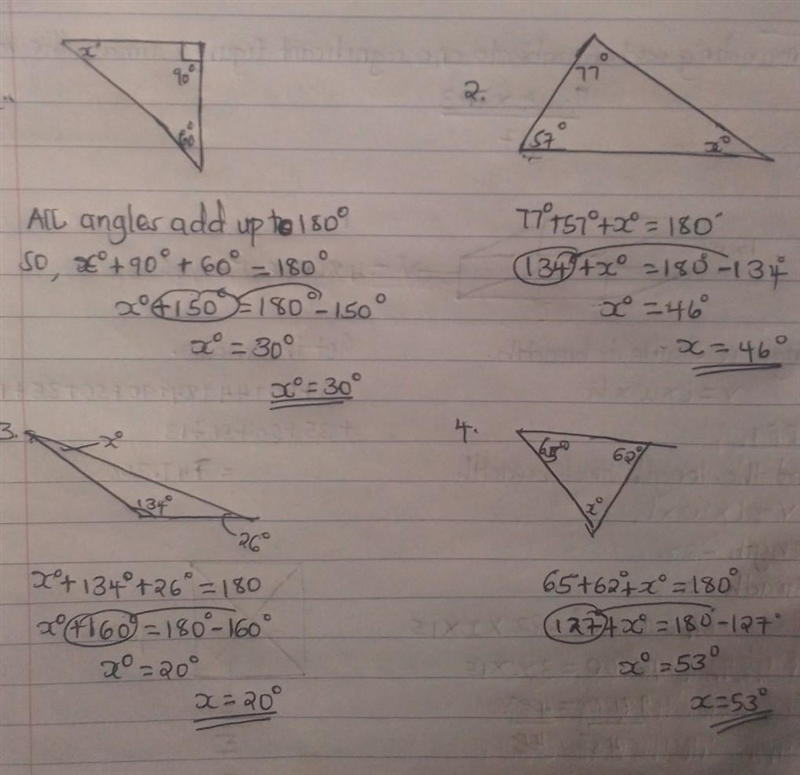 x°
90°
60°
2.
77°
57°
x°
All angles add up to 180°
so, x°+90°+60°=180°
x°+150°=180°-150°
x°=30°
x°=30°
77°+57°+x°=180°
134°+x°=180°-134°
x°=46°
x=46°
3.
x°
134°
26°
x°+134°+26°=180
x°+160°=180°-160°
x°=20°
x=20°
4.
65°
62°
x°
65+62°+x°=180°
127°+x°=180°-127°
x°=53°
x=53°